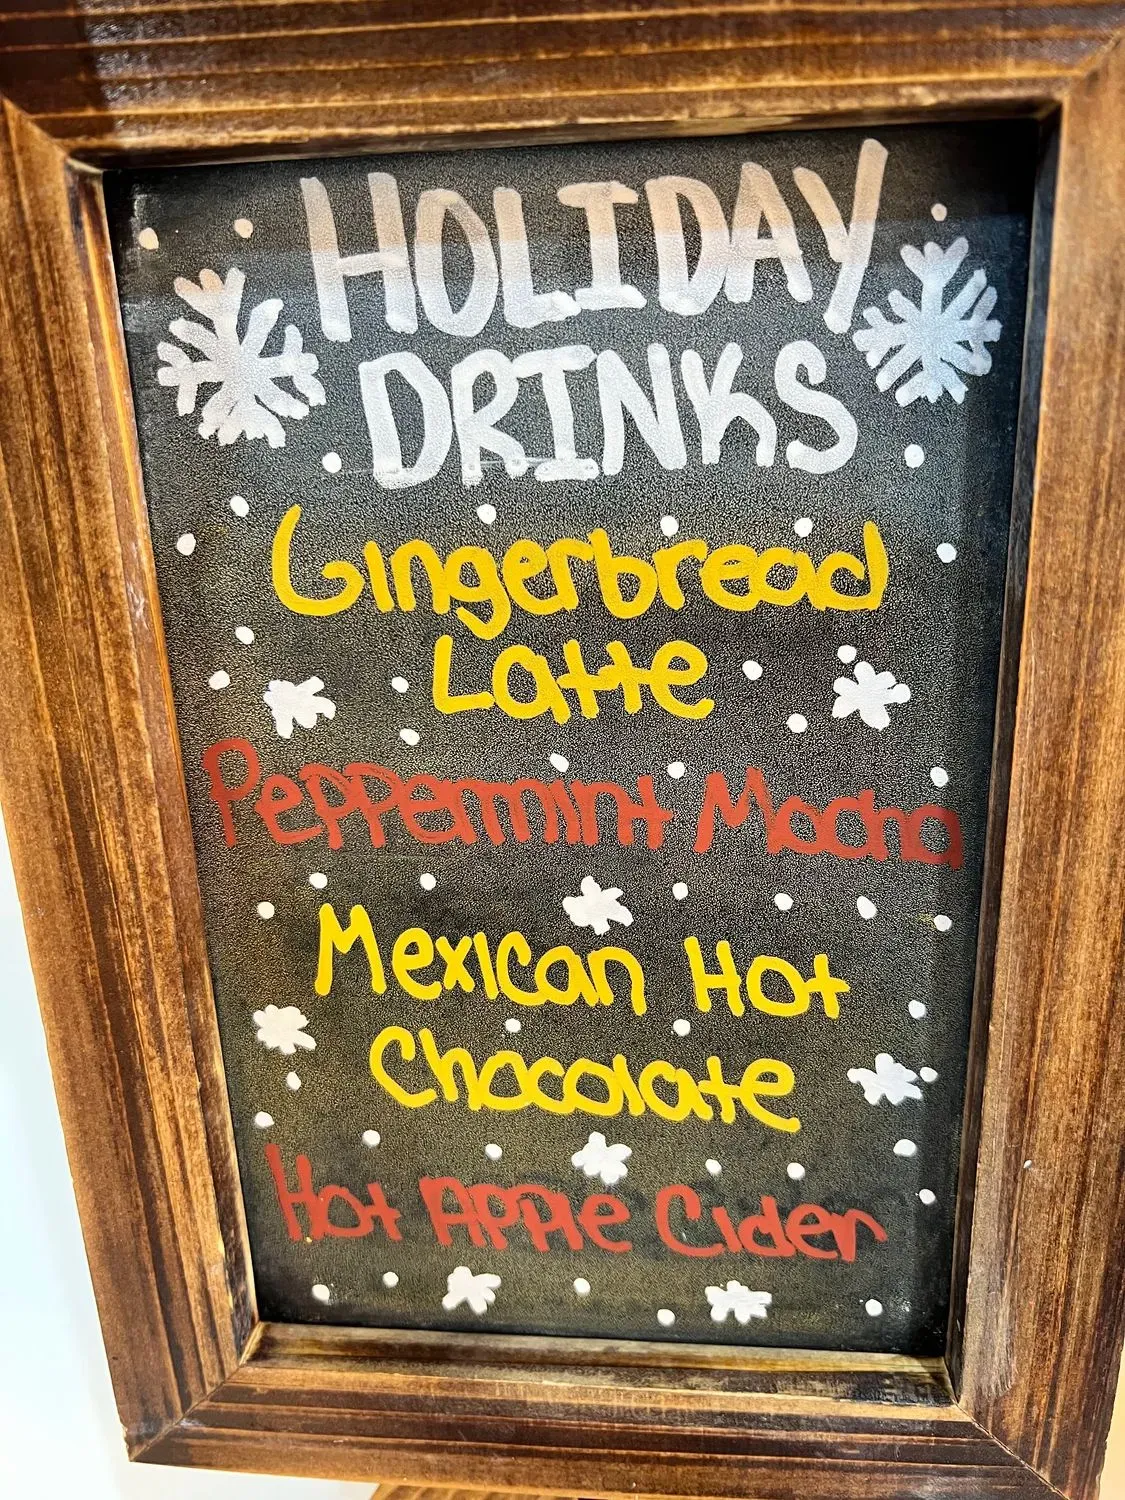 HOLIDAY
DRINKS
Gingerbread
Latte
Peppermint Mocha
Mexican Hot
Chocolate
Hot Apple Cider